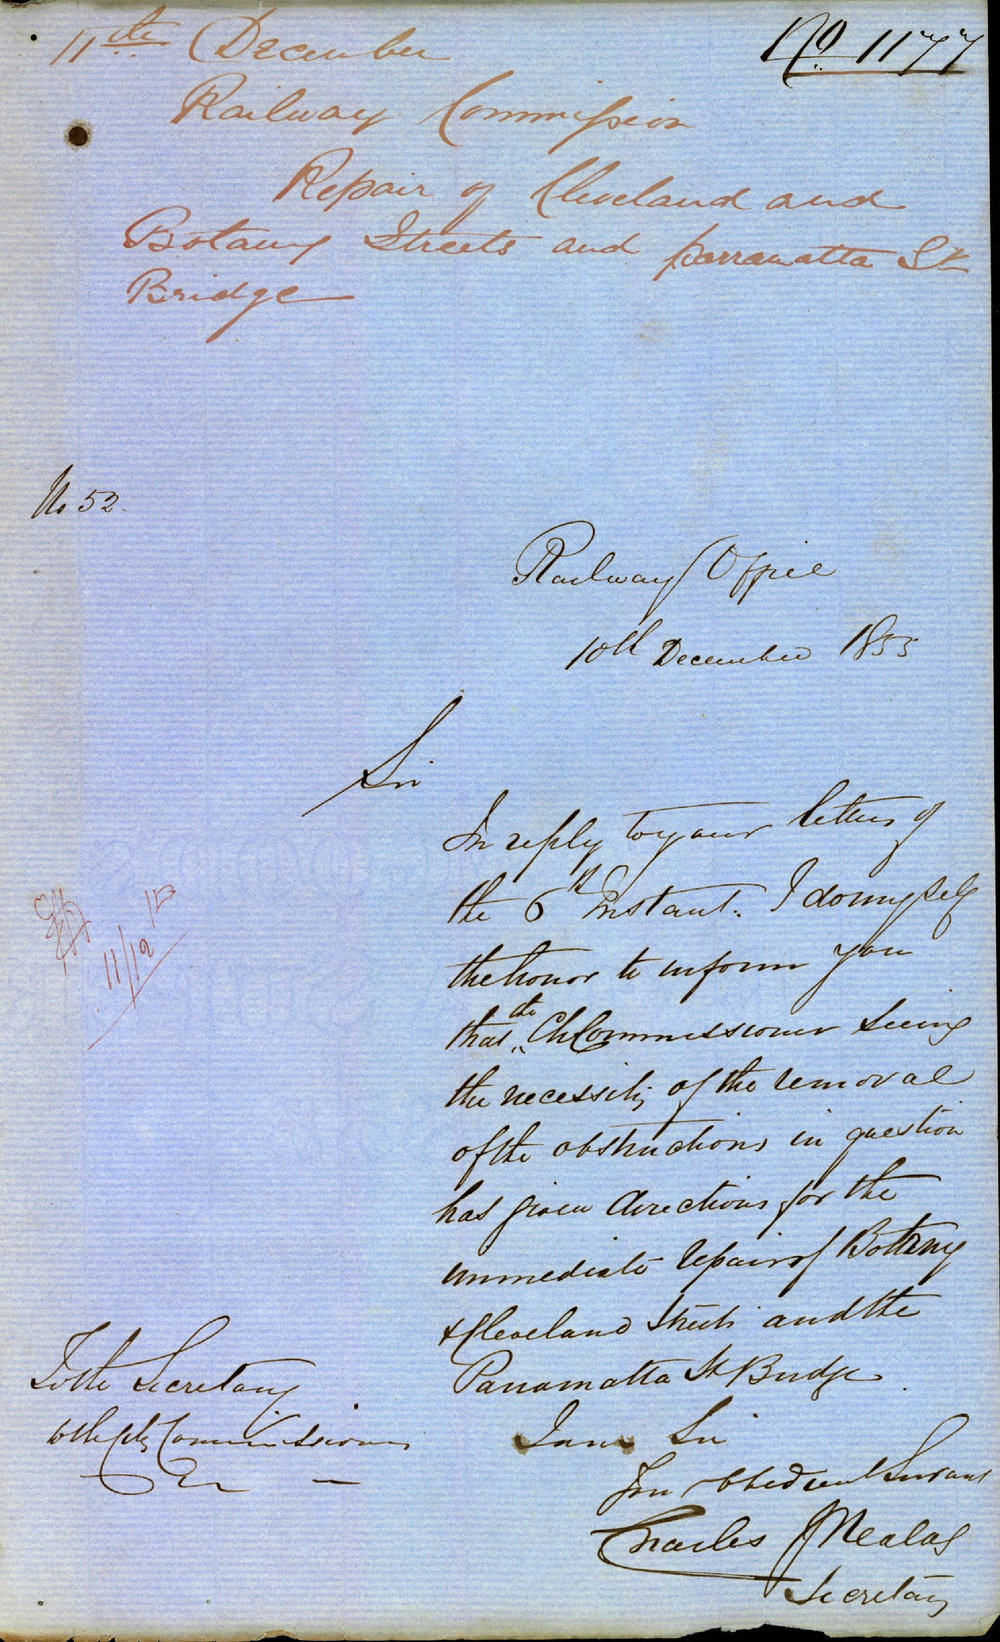 11th December
No 1177
Railway Commission
Repair of Cleveland and
Botany Streets and Parramatta St
Bridge
No 52.
Railway Office
10th December 1855
Sir
In reply to your letter of
the 6th Instant. I do myself
the honor to inform you
that the Ch Commissioner seeing
the necessity of the removal
of the obstructions in question
has given directions for the
immediate repair of Bottany
& Cleveland Streets and the
Parramatta St Bridge.
I am Sir
Your obedient Servant
Charles
Secretary
To the Secretary
to the City Commissioners
11/12